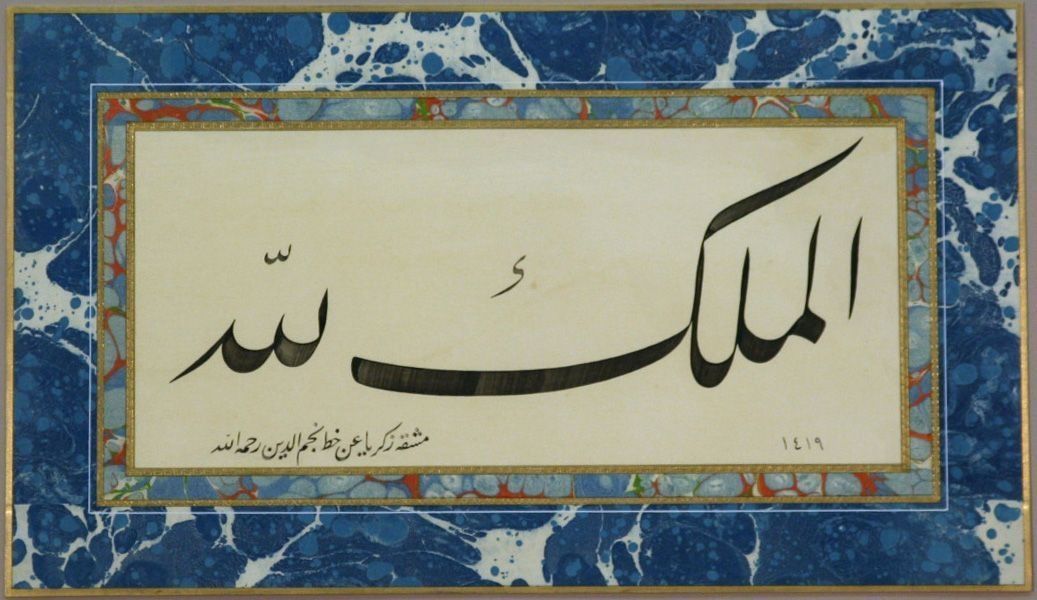 الملك لله
١٤١٩
مشقه زكريا عن خط نجم الدين رحمه الله